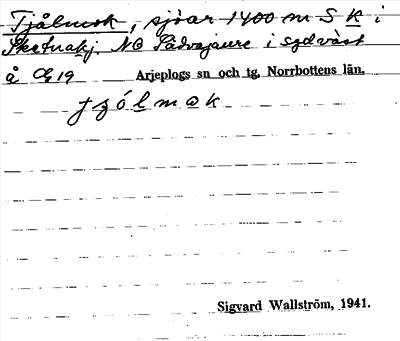 Tjålmok, sjöar 1400 m S K i
Sketnakj. NO Pädvajaure i sydväst
å Œ 19 Arjeplogs sn och tg, Norrbottens län.
Sigvard Wallström, 1941.